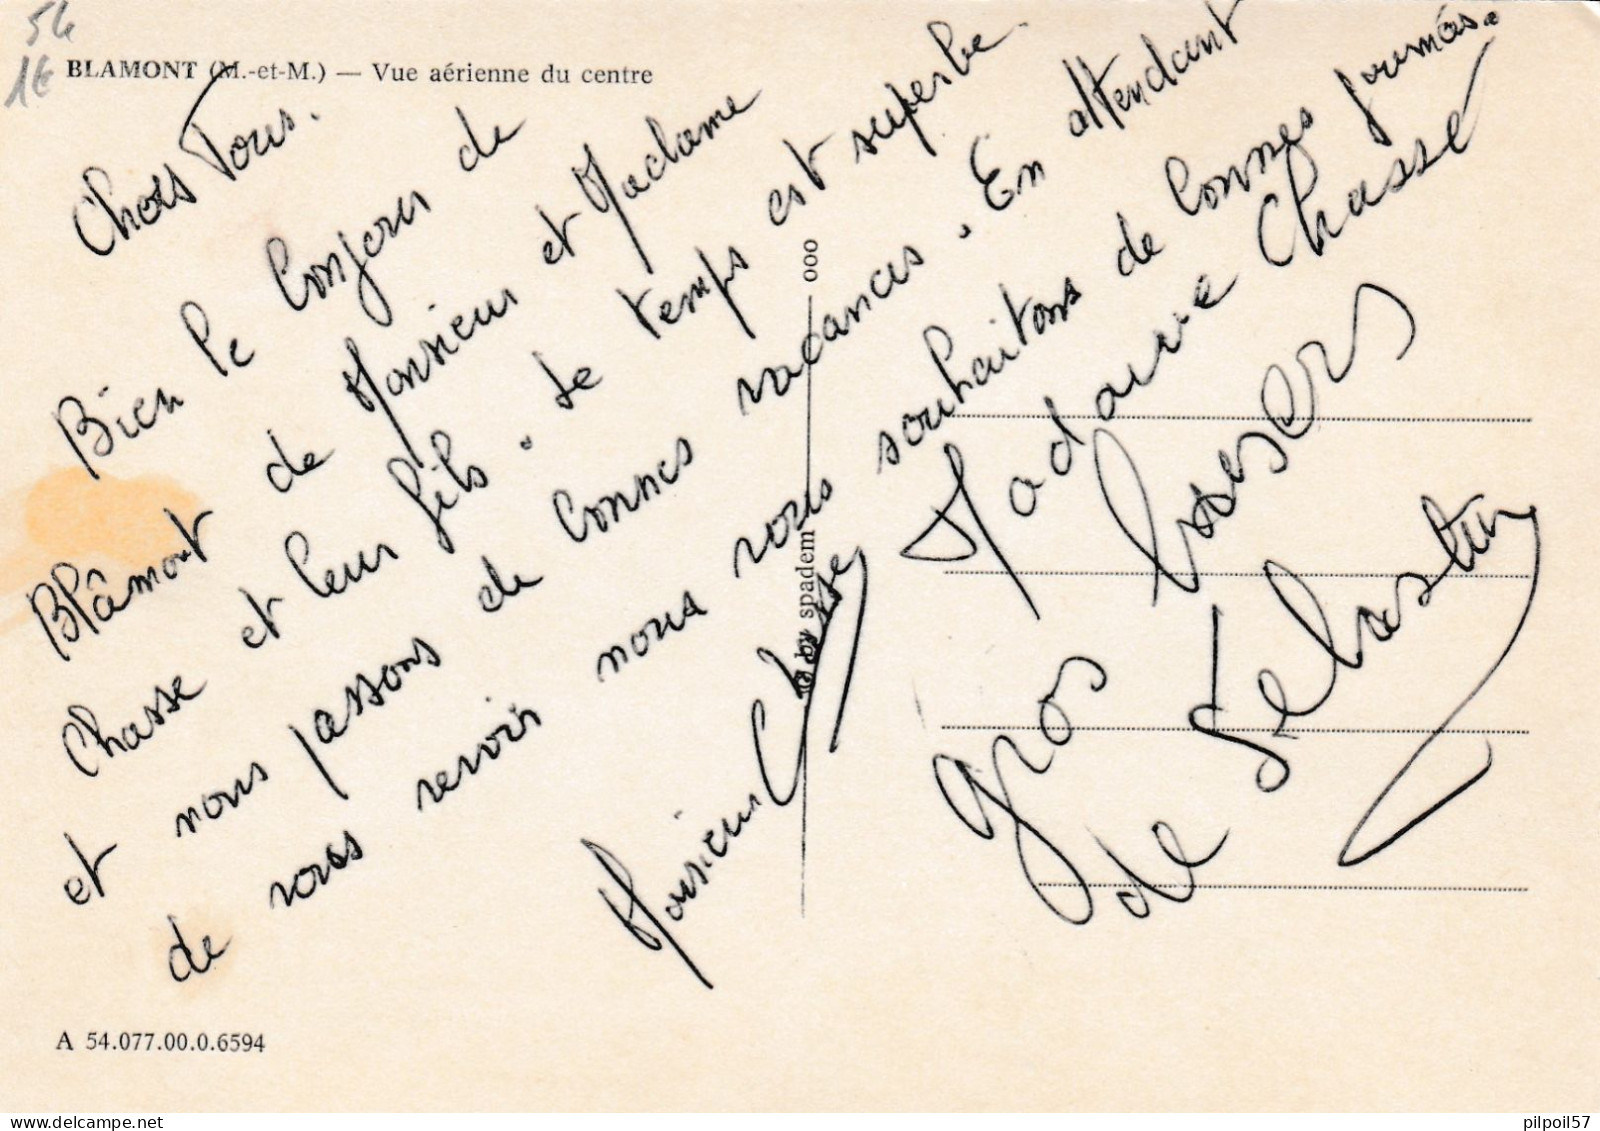 54
1€
BLAMONT (M.-et-M.) — Vue aérienne du centre
Chers Tous.
Bien le bonjour de
Blâmont de Monsieur et Madame
Chasse et leur fils. Le temps est superbe
et nous passons de bonnes vacances. En attendant
de vous revoir nous vous souhaitons de bonnes journées.
Monsieur Chasse
Madame Chasse
gros baisers
de Sébastien
ooo
by spadem
A 54.077.00.0.6594
delcampe.net
pilpoil57